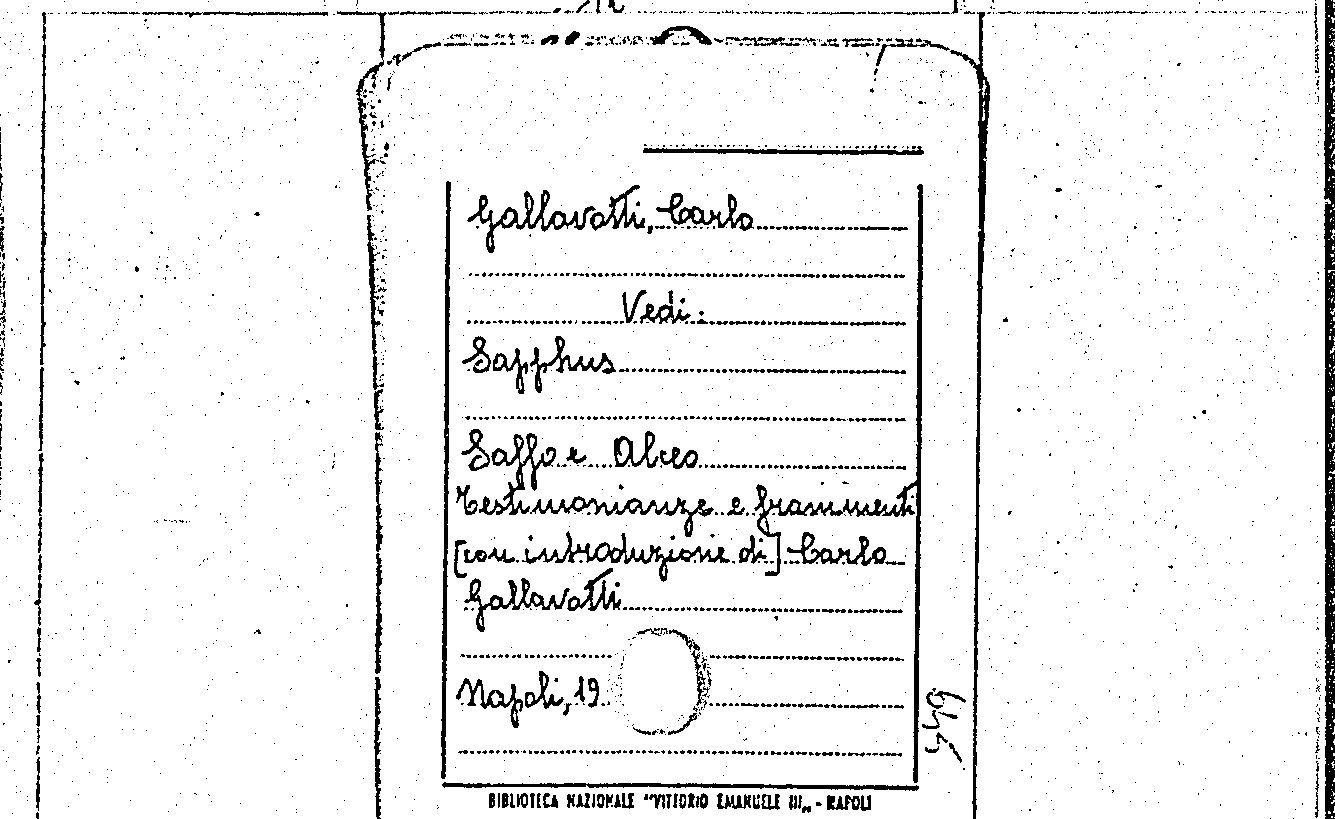 Gallavotti, Carlo
Vedi:
Sapphus
Saffo e Alceo
Testimonianze e frammenti
[con introduzione di] Carlo
Gallavotti
Napoli, 19
BIBLIOTECA NAZIONALE "VITTORIO EMANUELE III„ - NAPOLI